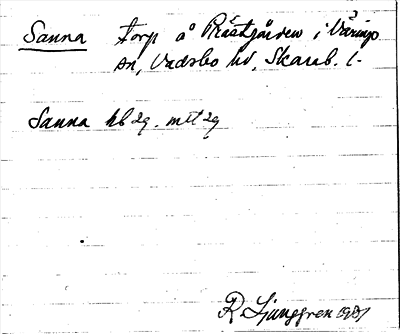 Sanna Torp å Prästgården i Väring
sn, Vadsbo hd, Skarab. l.
Sanna hb 29. mtt 29
R Ljunggren 1901